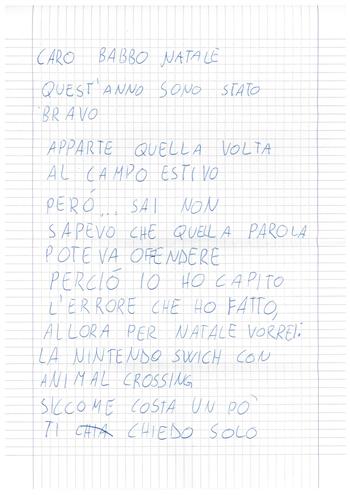 CARO BABBO NATALE
QUEST'ANNO SONO STATO
BRAVO
APPARTE QUELLA VOLTA
AL CAMPO ESTIVO
PERÓ... SAI NON
SAPEVO CHE QUELLA PAROLA
POTEVA OFFENDERE
PERCIÓ IO HO CAPITO
L'ERRORE CHE HO FATTO,
ALLORA PER NATALE VORREI:
LA NINTENDO SWICH CON
ANIMAL CROSSING
SICCOME COSTA UN PO'
TI CHIEDO SOLO